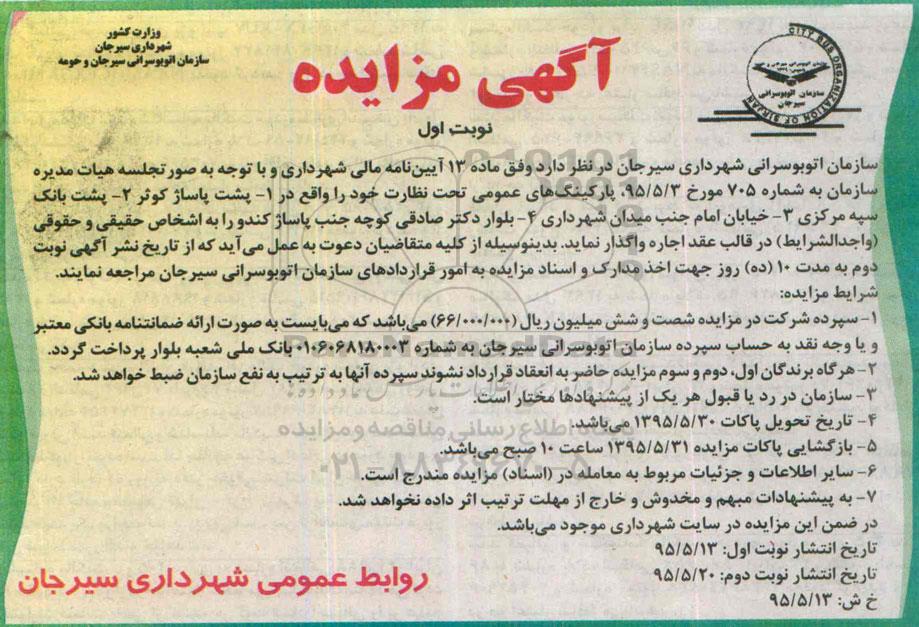 وزارت کشور
شهرداری سیرجان
سازمان اتوبوسرانی سیرجان و حومه
CITY BUS ORGANIZATION OF SIRJAN
سازمان اتوبوسرانی
سیرجان
آگهی مزایده
نوبت اول
سازمان اتوبوسرانی شهرداری سیرجان در نظر دارد وفق ماده ۱۳ آیین‌نامه مالی شهرداری و با توجه به صورتجلسه هیات مدیره
سازمان به شماره ۷۰۵ مورخ ۹۵/۵/۳، پارکینگ‌های عمومی تحت نظارت خود را واقع در ۱- پشت پاساژ کوثر ۲- پشت بانک
سپه مرکزی ۳- خیابان امام جنب میدان شهرداری ۴- بلوار دکتر صادقی کوچه جنب پاساژ کندو را به اشخاص حقیقی و حقوقی
(واجدالشرایط) در قالب عقد اجاره واگذار نماید. بدینوسیله از کلیه متقاضیان دعوت به عمل می‌آید که از تاریخ نشر آگهی نوبت
دوم به مدت ۱۰ (ده) روز جهت اخذ مدارک و اسناد مزایده به امور قراردادهای سازمان اتوبوسرانی سیرجان مراجعه نمایند.
شرایط مزایده:
۱- سپرده شرکت در مزایده شصت و شش میلیون ریال (۶۶/۰۰۰/۰۰۰) می‌باشد که می‌بایست به صورت ارائه ضمانتنامه بانکی معتبر
و یا وجه نقد به حساب سپرده سازمان اتوبوسرانی سیرجان به شماره ۰۱۰۶۰۶۸۱۸۰۰۰۳ بانک ملی شعبه بلوار پرداخت گردد.
۲- هرگاه برندگان اول، دوم و سوم مزایده حاضر به انعقاد قرارداد نشوند سپرده آنها به ترتیب به نفع سازمان ضبط خواهد شد.
۳- سازمان در رد یا قبول هر یک از پیشنهادها مختار است.
۴- تاریخ تحویل پاکات ۱۳۹۵/۵/۳۰ می‌باشد.
۵- بازگشایی پاکات مزایده ۱۳۹۵/۵/۳۱ ساعت ۱۰ صبح می‌باشد.
۶- سایر اطلاعات و جزئیات مربوط به معامله در (اسناد) مزایده مندرج است.
۷- به پیشنهادات مبهم و مخدوش و خارج از مهلت ترتیب اثر داده نخواهد شد.
در ضمن این مزایده در سایت شهرداری موجود می‌باشد.
تاریخ انتشار نوبت اول: ۹۵/۵/۱۳
تاریخ انتشار نوبت دوم: ۹۵/۵/۲۰
خ ش: ۹۵/۵/۱۳
روابط عمومی شهرداری سیرجان